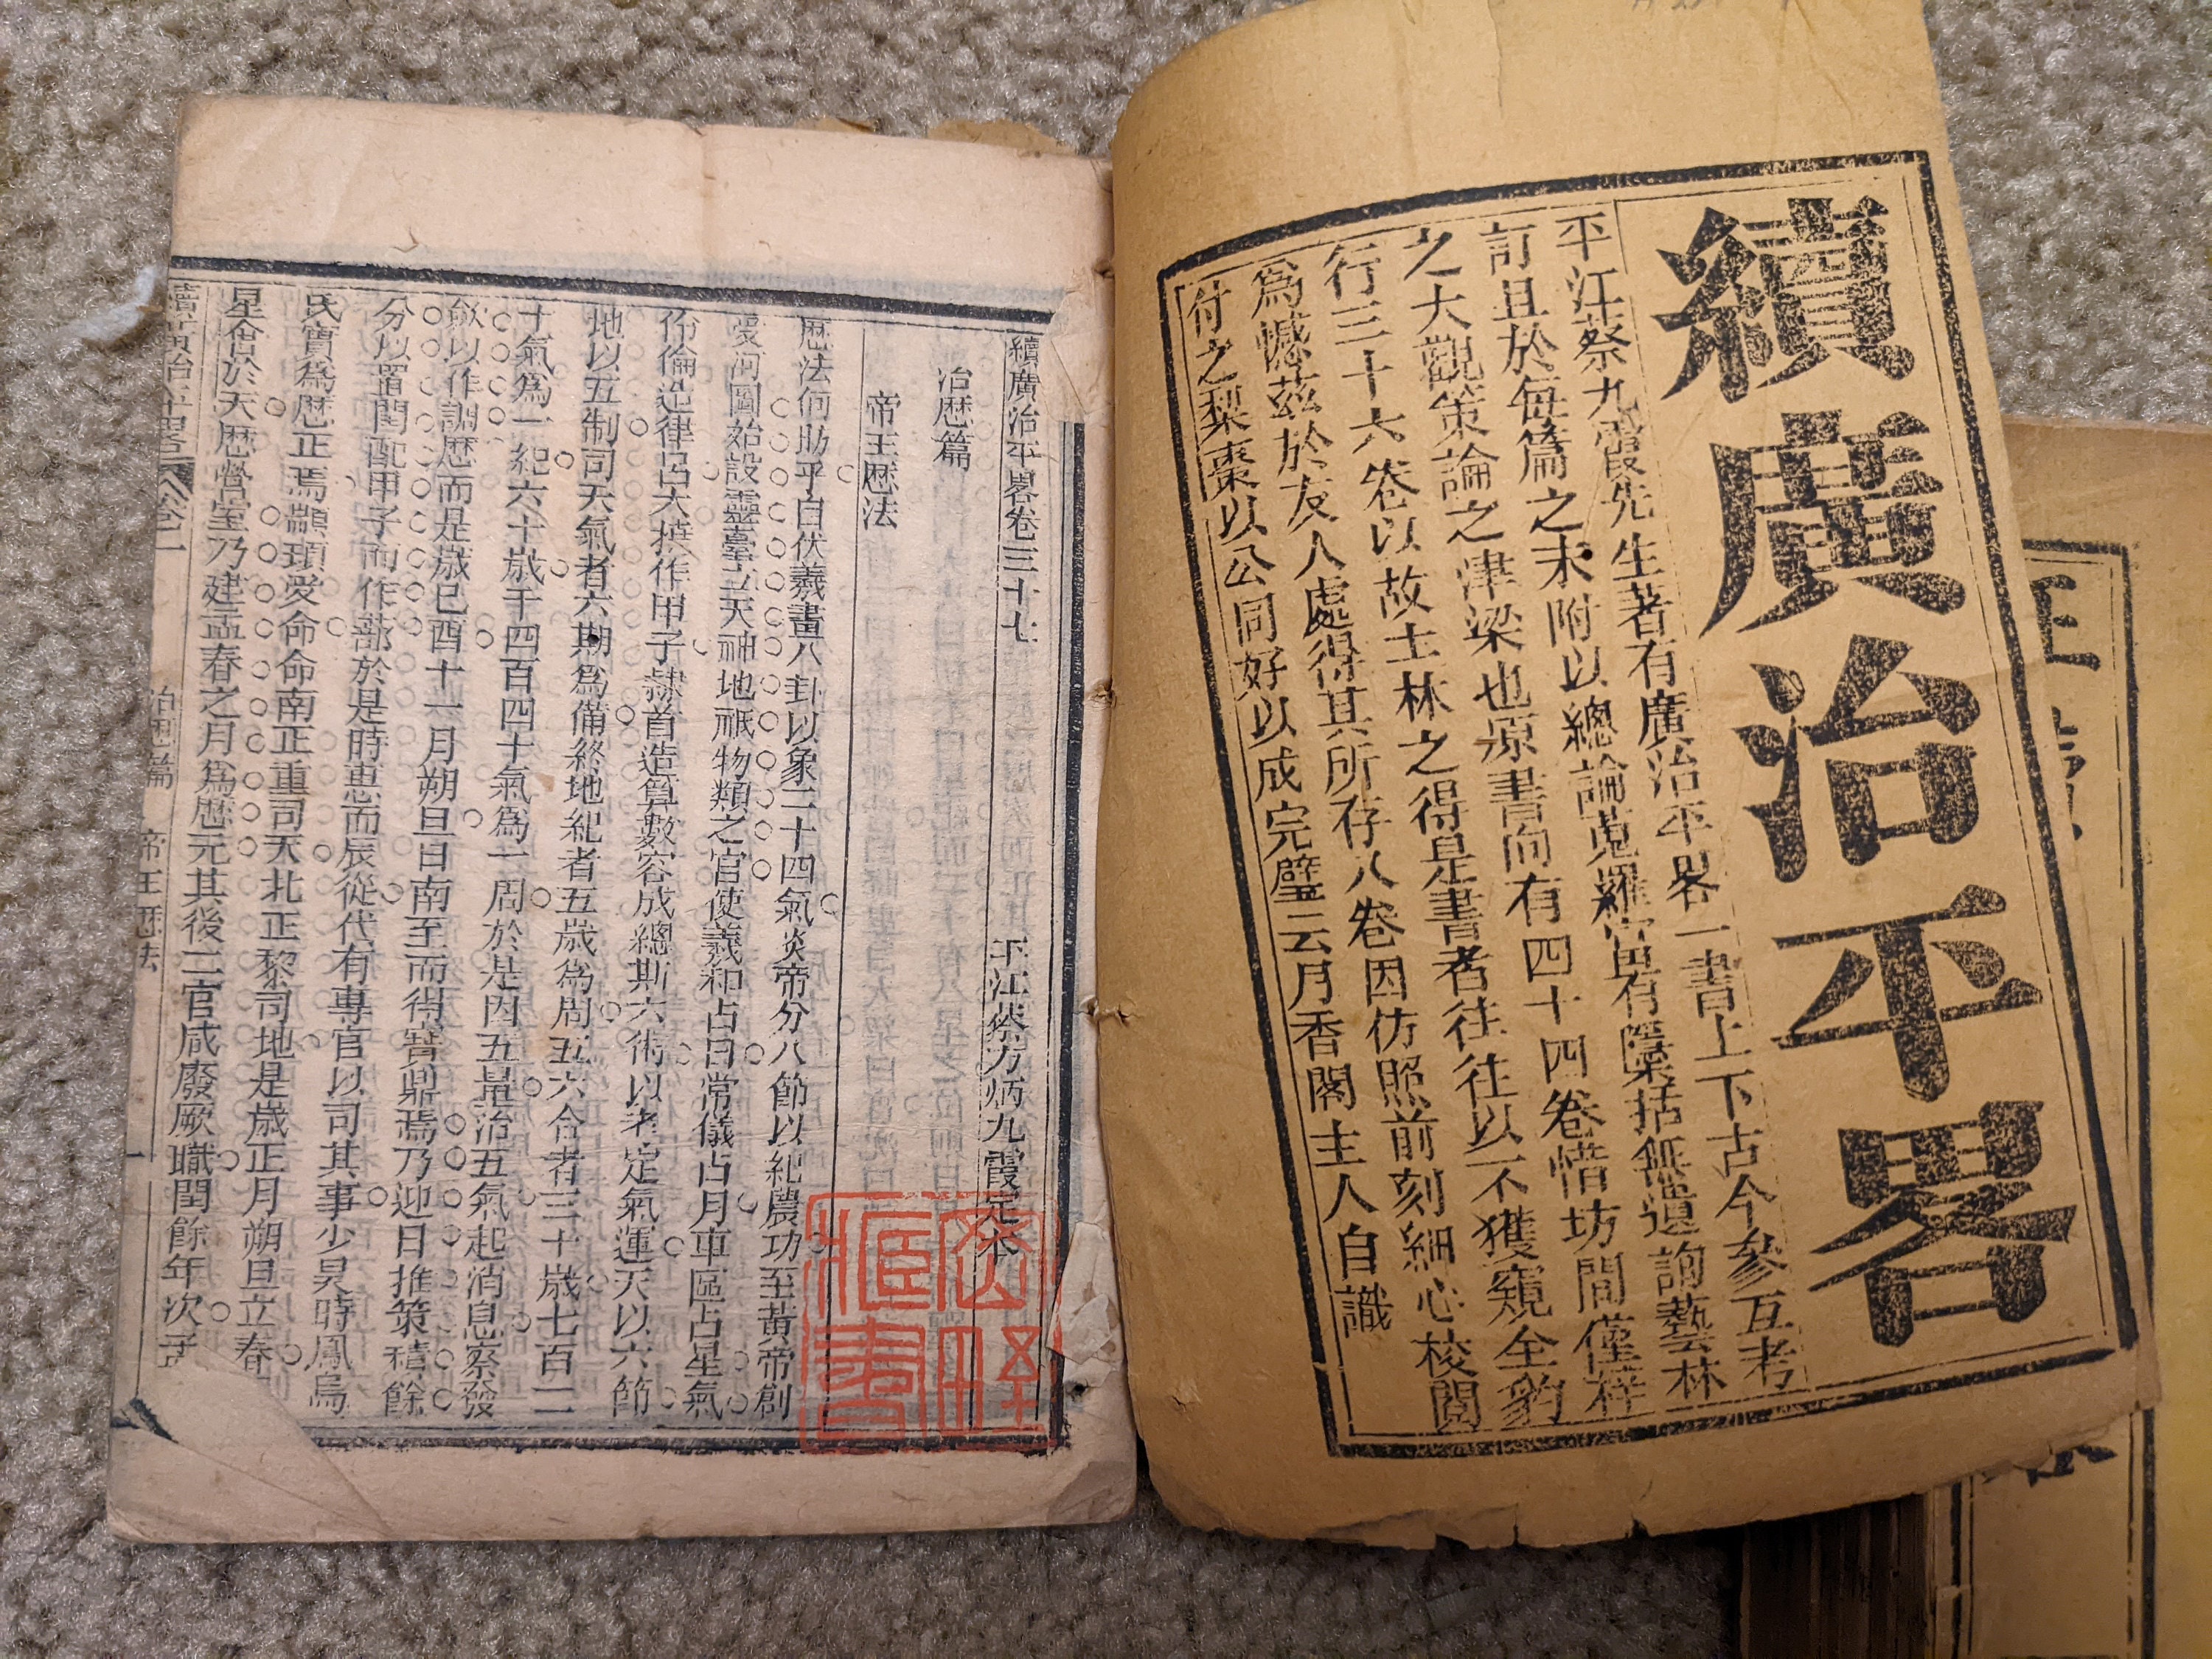 續廣治平畧
平江蔡九霞先生著有廣治平畧一書上下古今參互考
訂且於每篇之末附以總論蒐羅富有隱括無遺詢藝林
之大觀策論之津梁也原書向有四十四卷惜坊間僅梓
行三十六卷以故士林之得是書者往往以不獲窺全豹
為憾茲於友人處得其所存八卷因仿照前刻細心校閱
付之梨棗以公同好以成完璧云月香閣主人自識
續廣治平畧卷三十七
平江蔡方炳九霞定本
治歷篇
帝王歷法
歷法何昉乎自伏羲畫八卦以象二十四氣炎帝分八節以紀農功至黃帝創
受河圖始設靈臺立天神地祇物類之官使羲和占日常儀占月車區占星氣
伶倫造律呂大撓作甲子隸首造算數容成總斯六術以考定氣運天以六節
地以五制司天氣者六期為備終地紀者五歲為周五六合者三十歲七百二
十氣為一紀六十歲千四百四十氣為一周於是因五量治五氣起消息察發
歛以作調歷而是歲己酉十一月朔旦日南至而得寶鼎焉乃迎日推策積餘
分以置閏配甲子而作蔀於是時惠而辰從代有專官以司其事少昊時鳳鳥
氏實為歷正焉顓頊受命命南正重司天北正黎司地是歲正月朔旦立春
星會於天歷營室乃建孟春之月為歷元其後二官咸廢厥職閏餘年次
續廣治平畧 卷一 治歷篇 帝王歷法
藏書